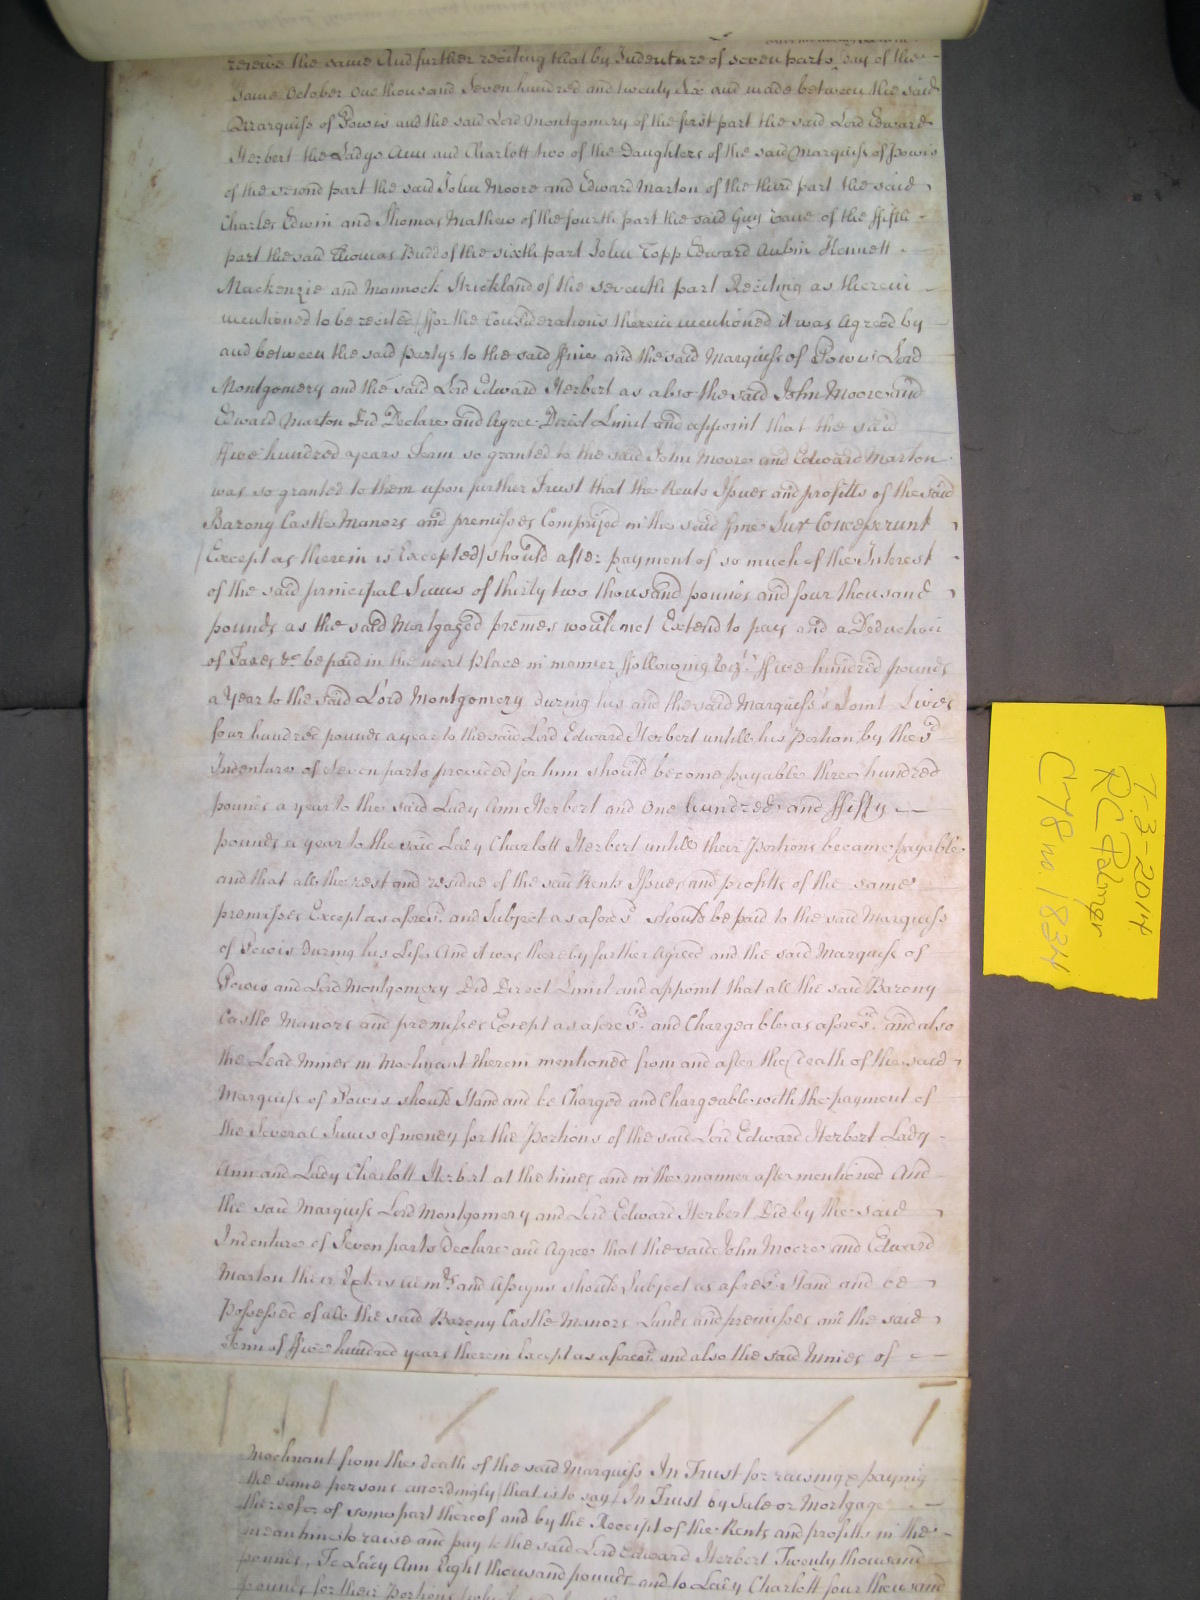 receive the same And further reciting that by Indenture of seven parts day of the
same October One thousand Seven hundred and twenty Six and made between the said
Marquiss of Powis and the said Lord Montgomery of the first part the said Lord Edward
Herbert the Ladys Ann and Charlott two of the Daughters of the said Marquiss of Powis
of the second part the said John Moore and Edward Marton of the third part the said
Charles Edwin and Thomas Mathew of the fourth part the said Guy Vane of the ffifth
part the said Thomas Budd of the sixth part John Topp Edward Aubin Kennett
Mackenzie and Mannock Strickland of the seventh part Reciting as therein
mentioned to be recited ffor the Considerations therein mentioned it was Agreed by
and between the said partys to the said ffine and the said Marquiss of Powis Lord
Montgomery and the said Lord Edward Herbert as also the said John Moore and
Edward Marton Did Declare and Agree Direct Limit and appoint that the said
ffive hundred years Term so granted to the said John Moore and Edward Marton
was so granted to them upon further Trust that the Rents Issues and profitts of the said
Barony Castle Manors and premisses Comprized in the said ffine Sur Concesserunt
(Except as therein is Excepted) should after payment of so much of the Interest
of the said principal Sums of thirty two thousand pounds and four thousand
pounds as the said Mortgaged premes would not Extend to pay and a Deduction
of Taxes &c be paid in the next place in manner ffollowing vizt. ffive hundred pounds
a Year to the said Lord Montgomery during his and the said Marquiss's Joint Lives
four hundred pounds a year to the said Lord Edward Herbert untill his portion by the sd
Indenture of Seven parts provided for him should become payable three hundred
pounds a year to the said Lady Ann Herbert and One hundred and ffifty
pounds a year to the said Lady Charlott Herbert untill their Portions became payable
and that all the rest and residue of the said Rents Issues and profitts of the same
premisses Except as aforesd. and Subject as aforesd. should be paid to the said Marquiss
of Powis during his Life And it was thereby further Agreed and the said Marquiss of
Powis and Lord Montgomery Did Direct Limit and appoint that all the said Barony
Castle Manors and premisses Except as aforesd. and Chargeable as aforesd. and also
the Lead Mines in Mochnant therein mentioned from and after the death of the said
Marquiss of Powis should Stand and be Charged and Chargeable with the payment of
the Several Sums of money for the Portions of the said Lord Edward Herbert Lady
Ann and Lady Charlott Herbert at the times and in the manner after mentioned And
the said Marquiss Lord Montgomery and Lord Edward Herbert Did by the said
Indenture of Seven parts Declare and Agree that the said John Moore and Edward
Marton their Exters Adms and Assigns should Subject as aforesd. Stand and be
possessed of all the said Barony Castle Manors Lands and premisses and the said
Term of ffive hundred years therein Except as aforesd. and also the said Mines of
Mochnant from the death of the said Marquiss In Trust for raising & paying
the same persons accordingly (that is to say) In Trust by Sale or Mortgage
thereof or of some part thereof and by the Receipt of the Rents and profitts in the
meantime to raise and pay to the said Lord Edward Herbert Twenty thousand
pounds, To Lady Ann Eight thousand pounds and to Lady Charlott four thousand
pounds for their Portions
7-3-2014
RC Palmer
C 78 no. 1834